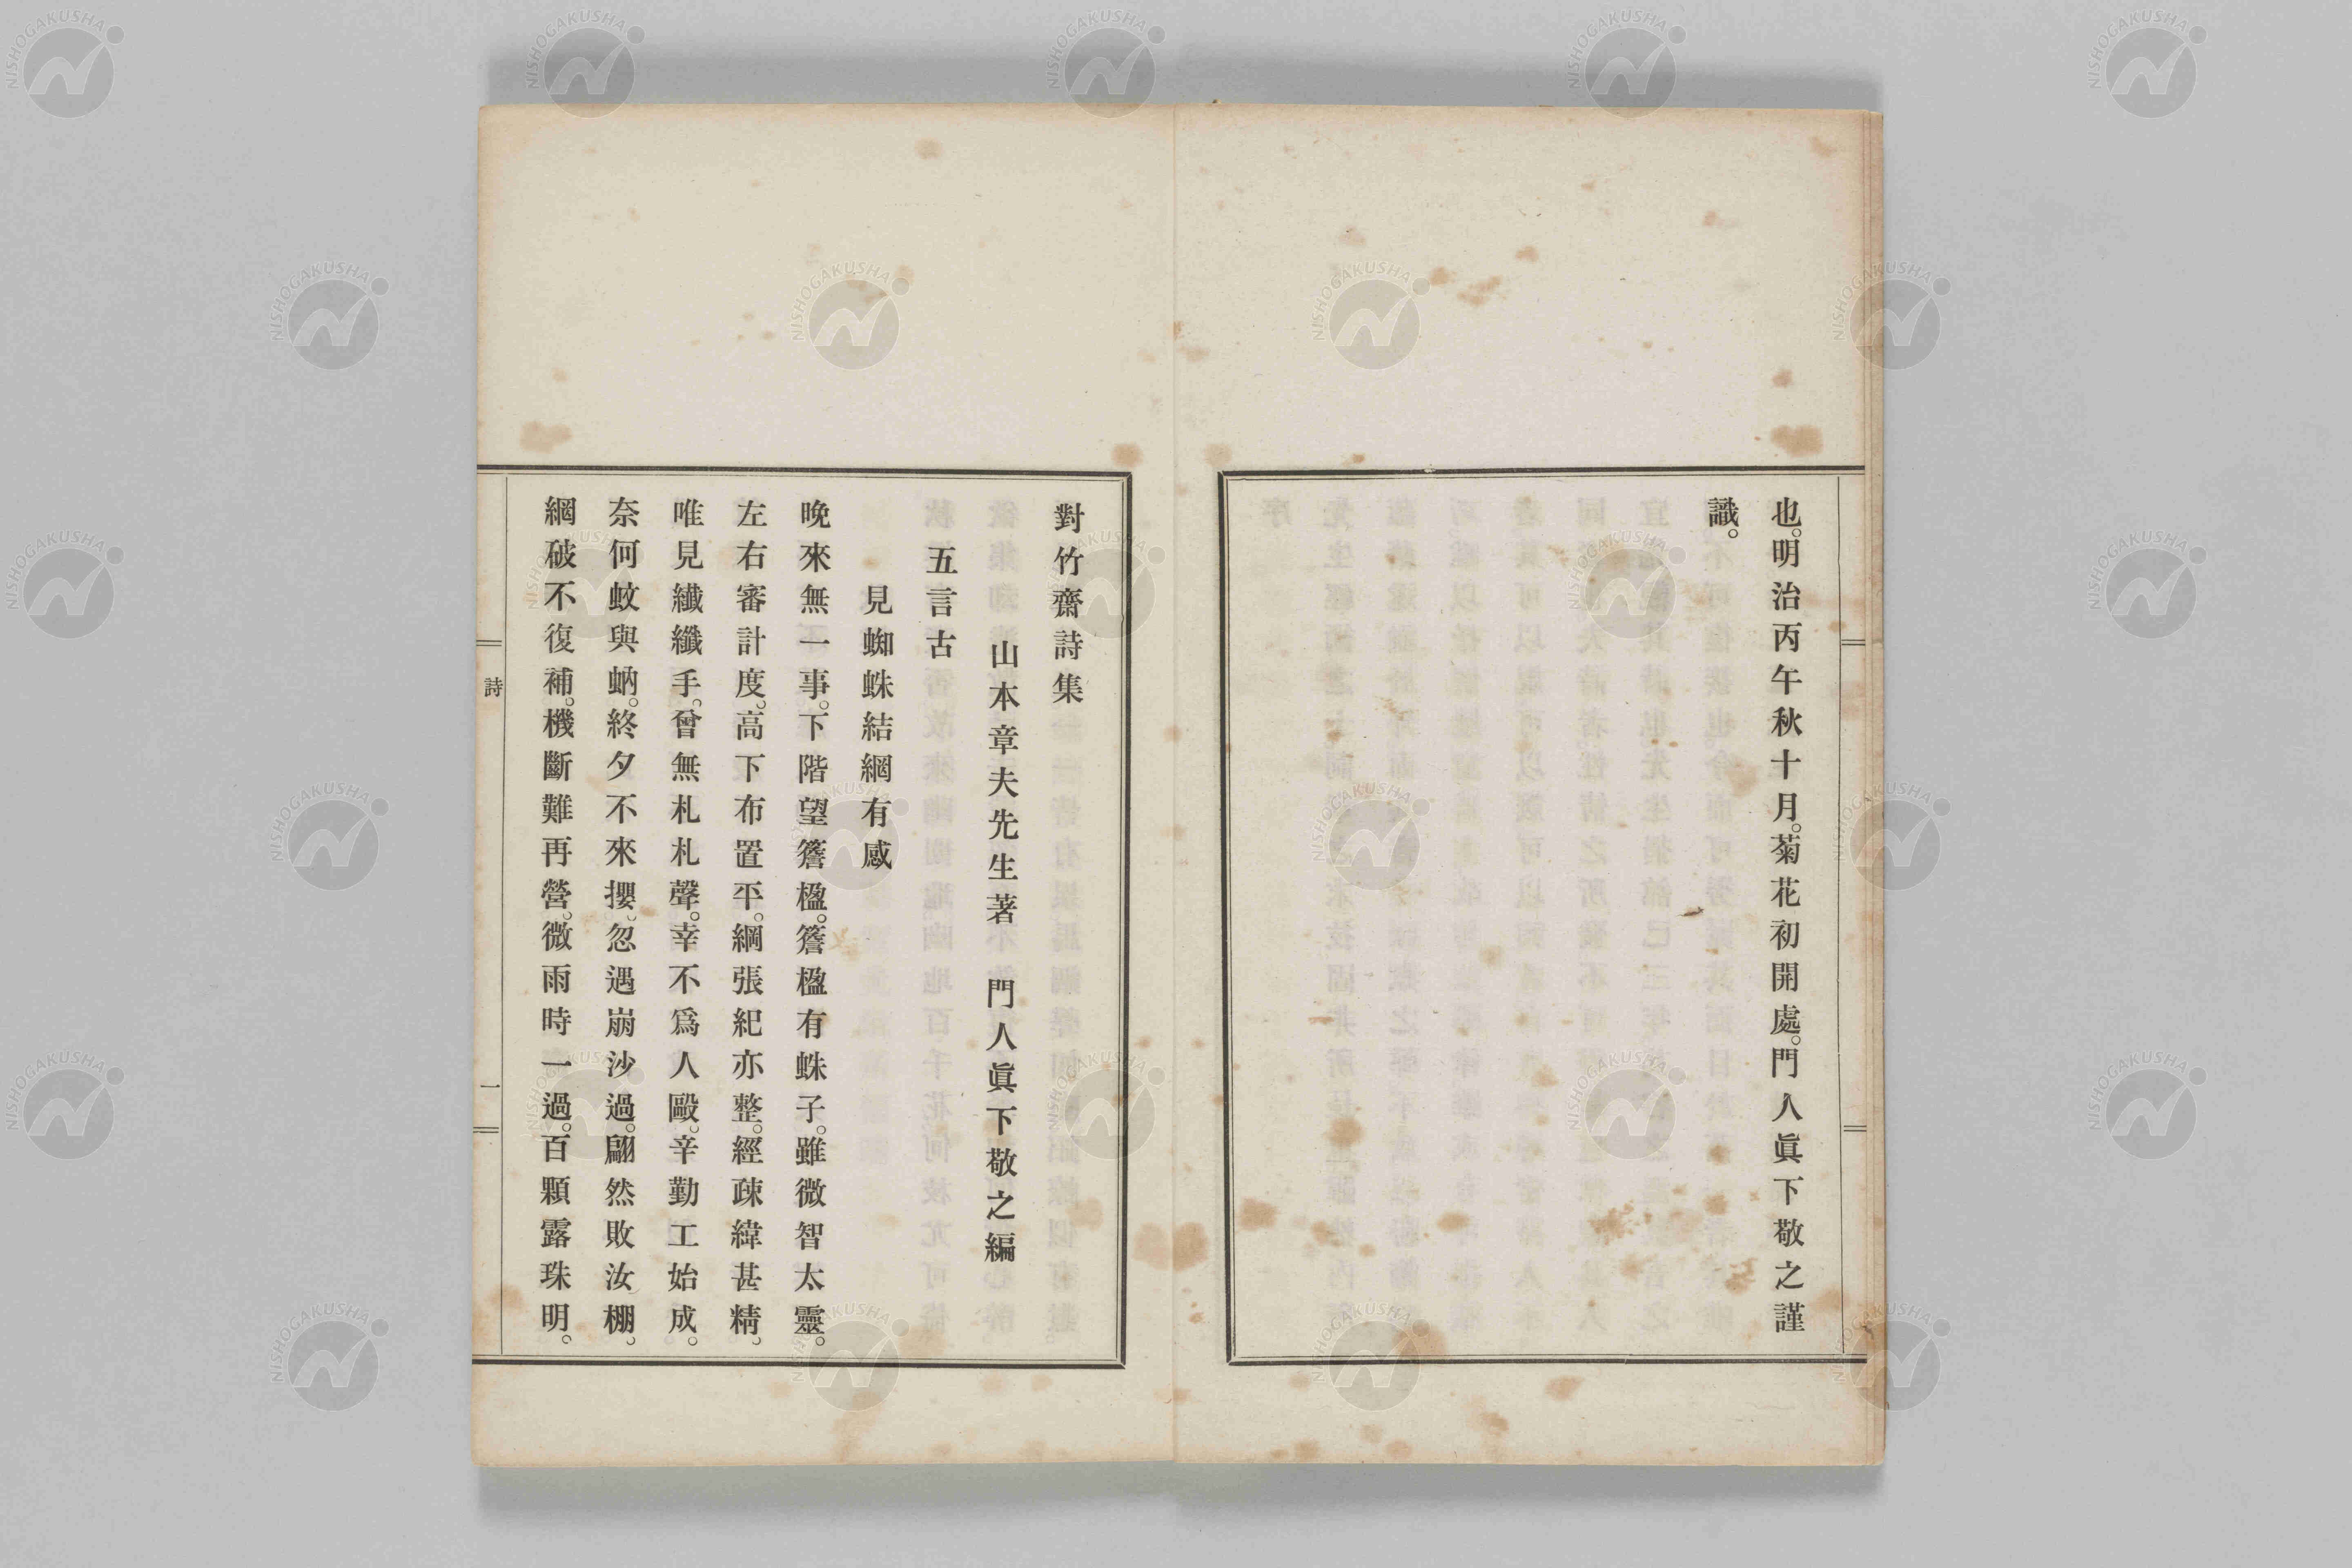 也。明治丙午秋十月。菊花初開處。門人眞下敬之謹
識。
對竹齋詩集
山本章夫先生著　門人眞下敬之編
五言古
見蜘蛛結網有感
晩來無一事。下階望簷楹。簷楹有蛛子。雖微智太靈。
左右審計度。高下布置平。綱張紀亦整。經疎緯甚精。
唯見纖纖手。曾無札札聲。幸不爲人毆。辛勤工始成。
奈何蚊與蚋。終夕不來攖。忽遇崩沙過。翩然敗汝棚。
網破不復補。機斷難再營。微雨時一過。百顆露珠明。
詩
一
NISHOGAKUSHA